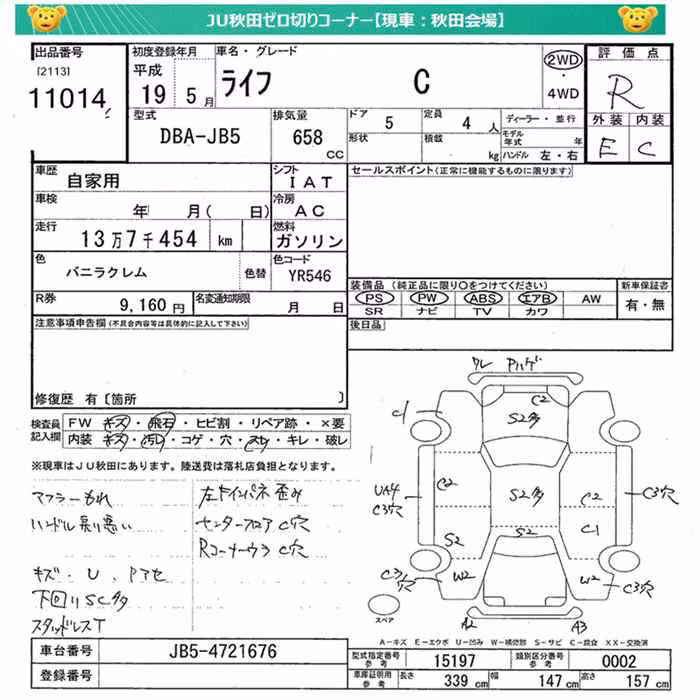 JU秋田ゼロ切りコーナー【現車：秋田会場】
出品番号
[2113]
11014
初度登録年月
平成
19 5 月
車名・グレード
ライフ C
2WD
・
4WD
評価点
R
外装 内装
E C
型式
DBA-JB5
排気量
658
CC
ドア 5
形状
定員 4 人
積載 kg
ディーラー・並行
モデル年式 年
ハンドル 左・右
車歴
自家用
シフト
IAT
車検
年 月( 日)
冷房
AC
走行
13万7千454 km
燃料
ガソリン
色
バニラクレム
色替
色コード
YR546
R券 9,160 円
名変通知期限 月 日
セールスポイント(正常に機能するものに限ります)
装備品(純正品に限り○をつけてください)
PS PW ABS エアB AW
SR ナビ TV カワ
新車保証書
有・無
後日品
注意事項申告欄(不具合内容等は具体的に記入して下さい)
修復歴 有〔箇所 〕
検査員記入欄
FW キズ・飛石・ヒビ割・リペア跡・×要
内装 キズ・汚れ・コゲ・穴・スレ・キレ・破レ
※現車はJU秋田にあります。陸送費は落札店負担となります。
マフラーもれ
ハンドル戻り悪い
キズ・U、Pアセ
下回りSC多
スタッドレスT
左ドインパネ歪み
センターフロアC穴
RコーナーウラC穴
ワレ Pハゲ
C2
S2多
C1
UA4
C3穴
C2
S2多
C2
C3穴
C1
S2
S2
C3穴
W2
W2
C3穴
スペア
A2
A3
A-キズ E-エクボ U-凹み W-補修跡 S-サビ C-腐食 XX-交換済
車台番号 JB5-4721676
登録番号
型式指定番号 参考 15197
類別区分番号 参考 0002
車庫証明用 参考
長さ 339 cm
幅 147 cm
高さ 157 cm